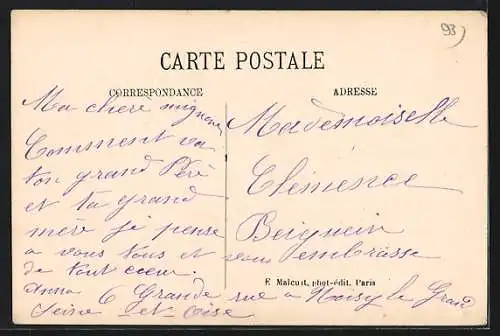 93
CARTE POSTALE
CORRESPONDANCE
ADRESSE
Ma chère mignone
Comment va
ton grand Père
et ta grand
mère je pense
a vous tous et vous embrasse
de tout cœur.
Anna
Mademoiselle
Clémence
E Malcuit, phot-édit. Paris
6 Grande rue a Noisy le Grand
Seine et Oise